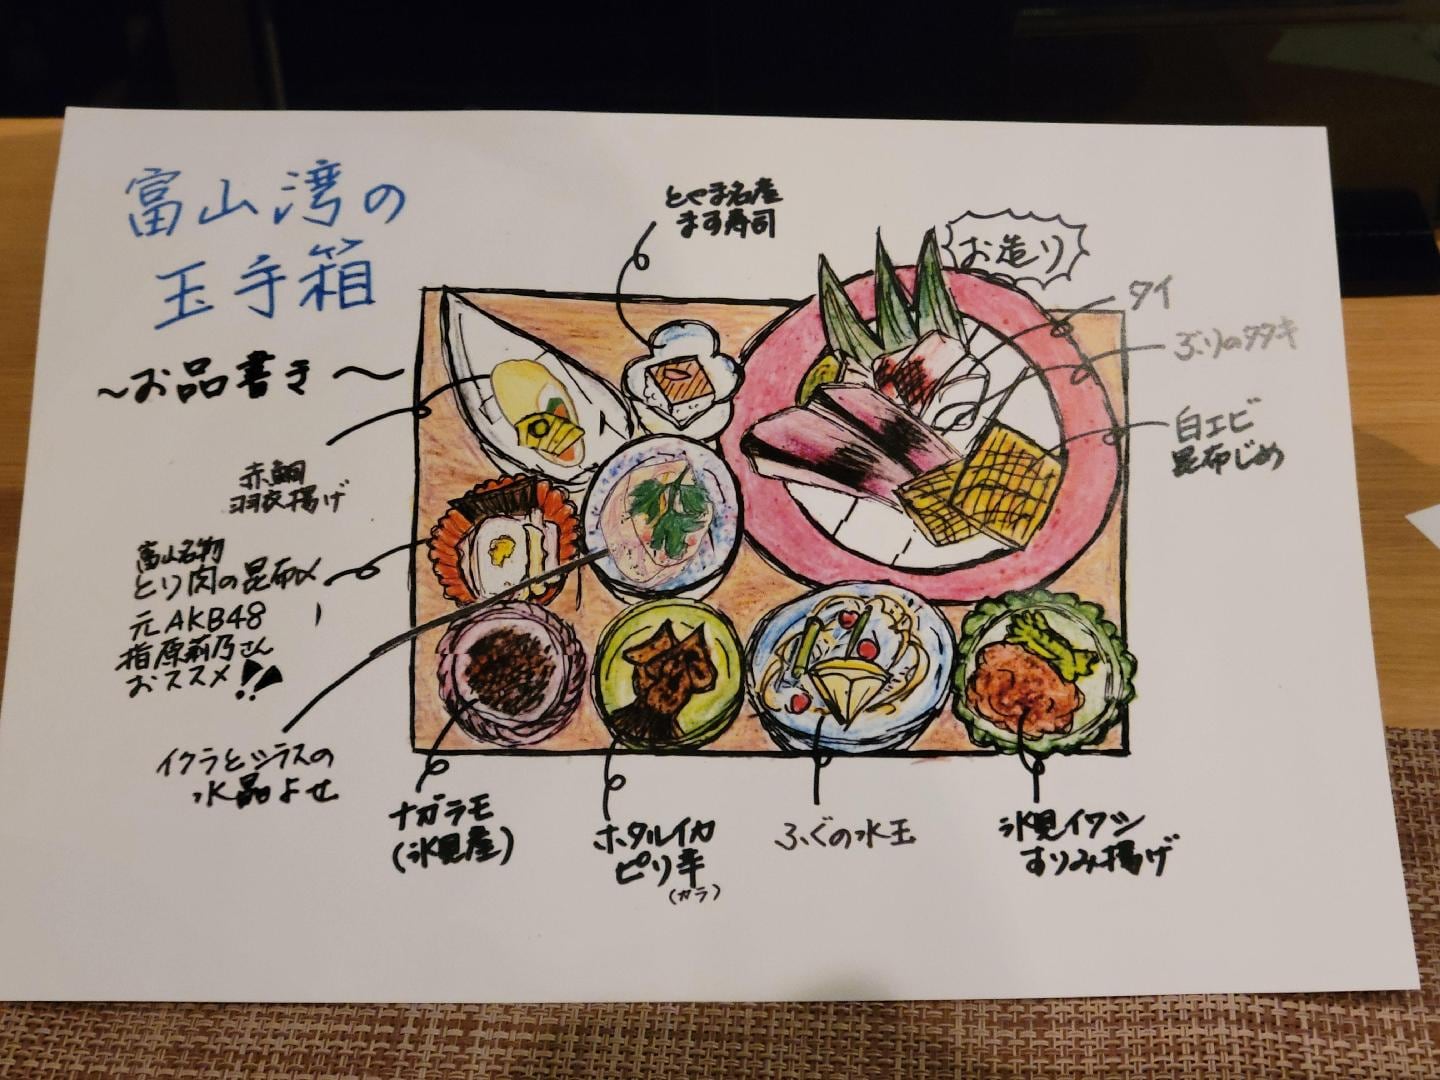 富山湾の
玉手箱
～お品書き～
とやま名産
ます寿司
お造り
タイ
ぶりのタタキ
白エビ
昆布じめ
赤鯛
羽衣揚げ
富山名物
とり肉の昆布〆
元AKB48
指原莉乃さん
おススメ!!
イクラとシラスの
水晶よせ
ナガラモ
(氷見産)
ホタルイカ
ピリ辛
(カラ)
ふぐの水玉
氷見イワシ
すりみ揚げ